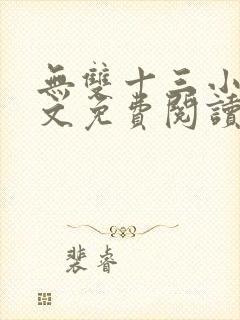 無雙十三小
文免費閱讀
裴睿